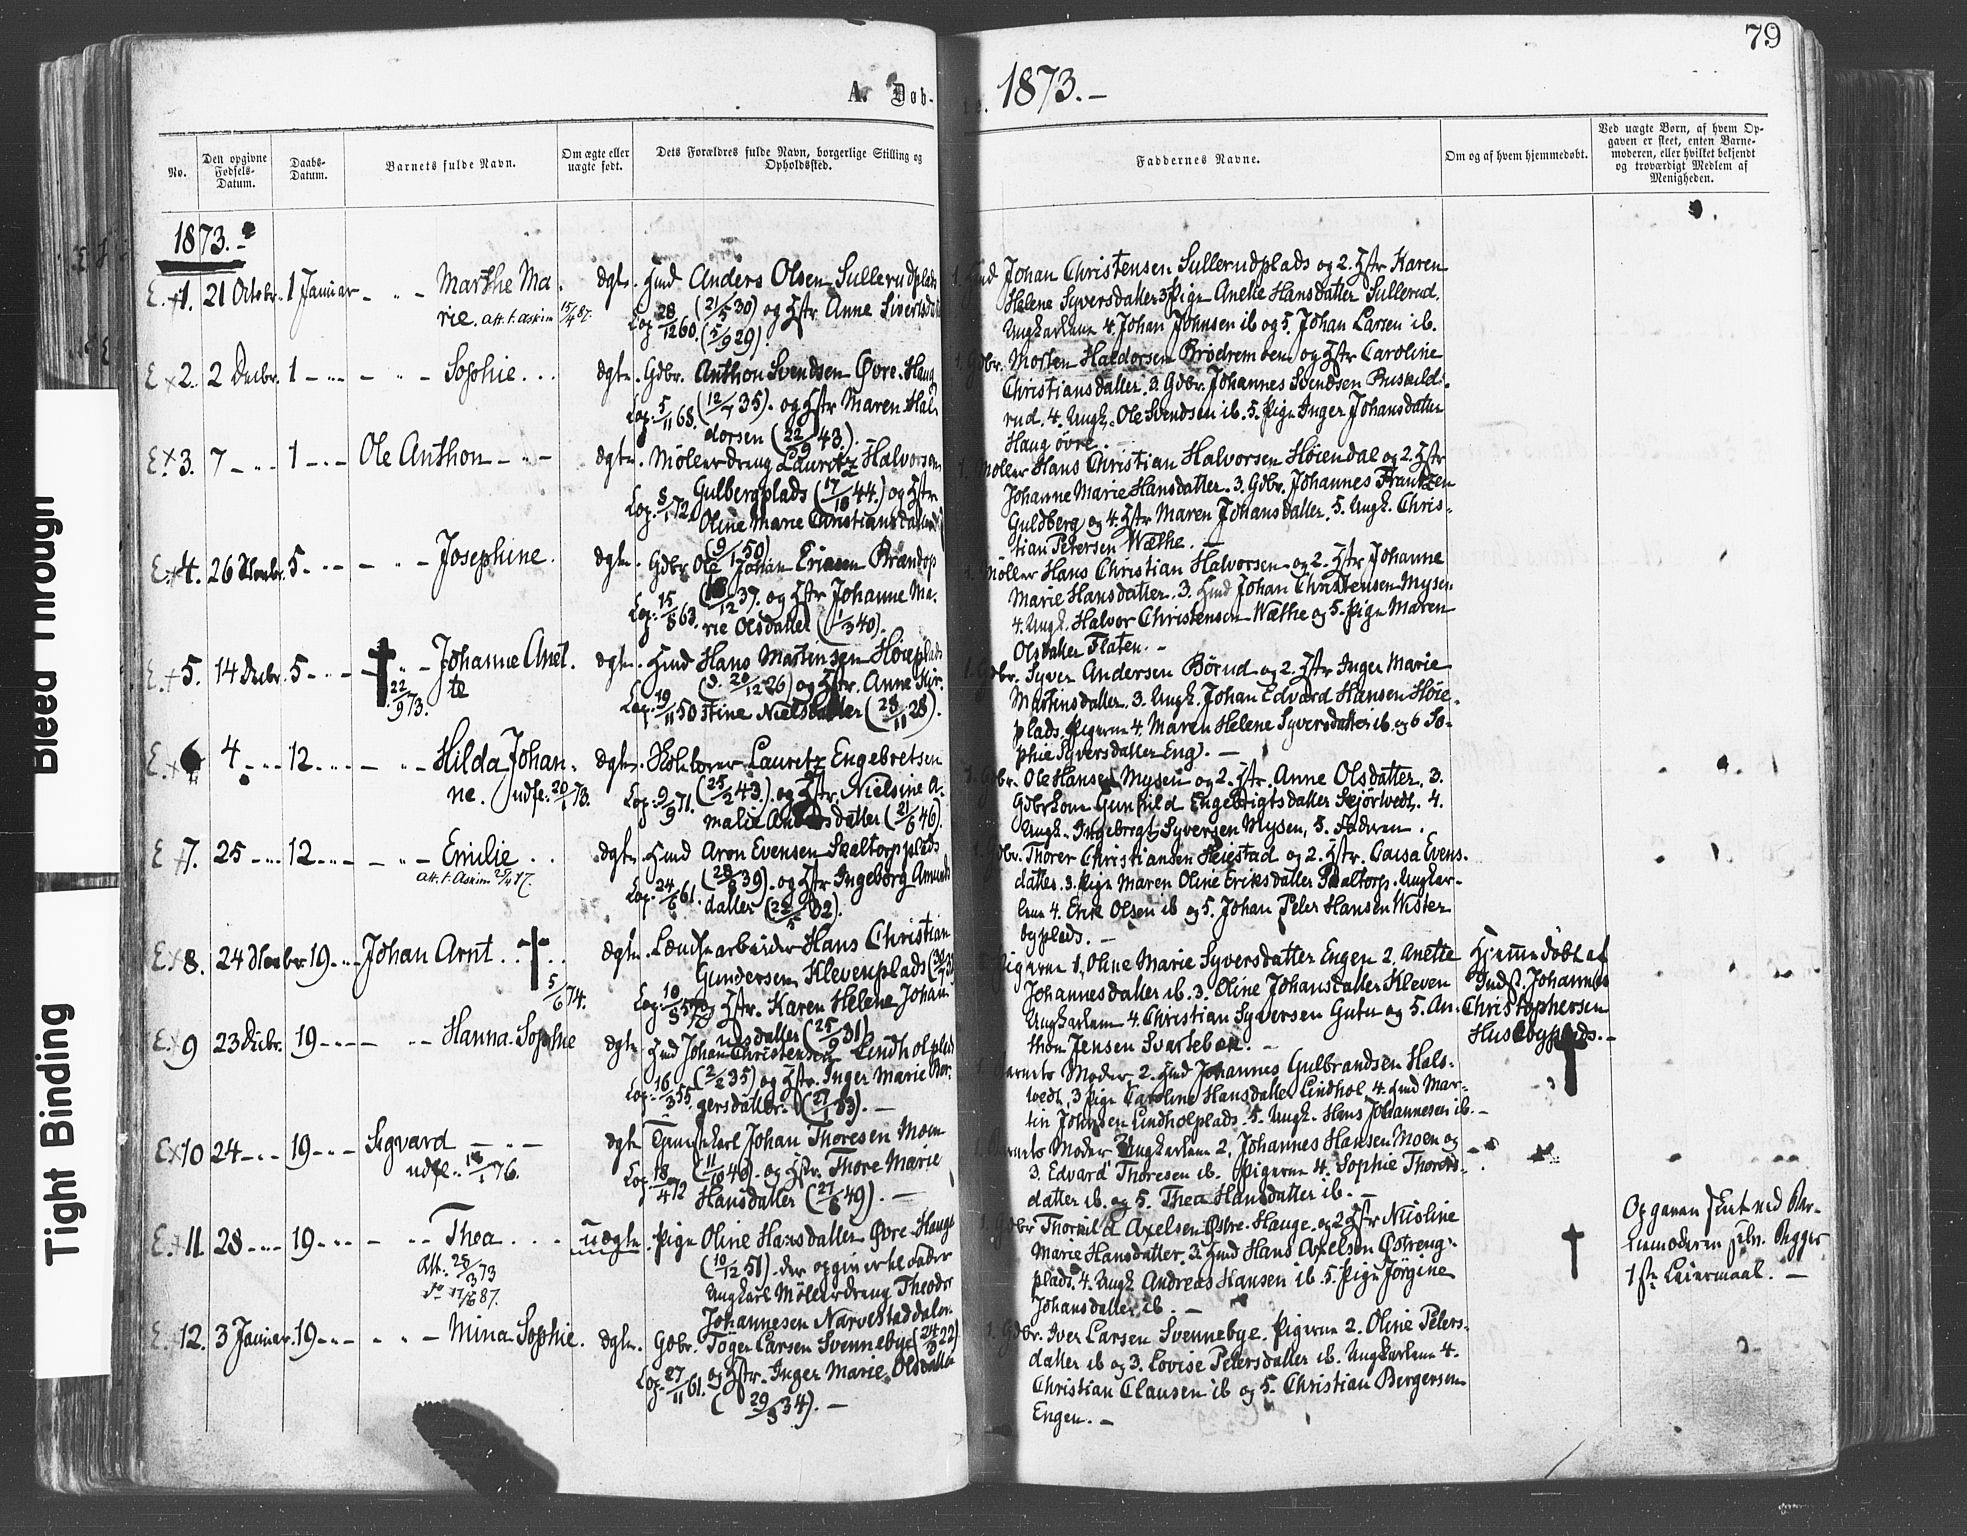 79
A. Døb-
1873.-
No.
Den opgivne Fødsels-Datum.
Daabs-Datum.
Barnets fulde Navn.
Om ægte eller uægte født.
Dets Forældres fulde Navn, borgerlige Stilling og Opholdssted.
Faddernes Navne.
Om og af hvem hjemmedøbt.
Ved uægte Børn, af hvem Opgaven er skeet, enten Barnemoderen, eller hvilket bekjendt og troværdigt Medlem af Menigheden.
1873.-
1. 21 Octobr. 1 Januar - " - Marthe Ma-
rie. att. t. Askim 15/4 87.
ægte. Hmd Anders Olsen Sullerudplads
(21/5 30) og Hstr Anne Sivertsdatter
Cop. 28/12 60. (5/9 29).
1. Hmd Johan Christensen Sullerudplads og 2. Hstr Karen
Helene Syversdatter 3 Pige Anette Hansdatter Sullerud.
Ungkarlene 4. Johan Johnsen ib og 5. Johan Larsen ib.
2. 2 Decbr. 1 - " - - " - Sophie. . .
ægte. Gdbr. Anthon Svendsen Øvre-Haug
Cop. 5/11 68. (12/7 35). og Hstr Maren Hal-
dorsen (22/9 43.).
1. Gdbr. Mosten Haldorsen Brødremoen og Hstr Caroline
Christiansdatter. 3. Gdbr. Johannes Svendsen Buskuld-
rud. 4. Ungk. Ole Svendsen ib. 5. Pige Inger Johansdatter
Haug øvre.
3. 7 - " - 1 - " - Ole Anthon - " -
ægte. Møllerdreng Lauritz Halvorsen
Gulbergplads (17/10 44.) og Hstr
Cop. 8/1 72. Oline Marie Christiansdatter
(9/1 50)
1. Møller Hans Christian Halvorsen Høiendal og 2. Hstr
Johanne Marie Hansdatter. 3. Gdbr. Johannes Frantzen
Guldberg og 4. Hstr Maren Johansdatter. 5. Ungk. Chris-
tian Petersen Wæthe. -
4. 26 Novbr. 5 - " - - " - Josephine.
ægte. Gdbr Ole Johan Ericsen Brandop
12 37. og Hstr Johanne Ma-
Cop. 15/8 63. rie Olsdatter (1/3 40).
1. Møller Hans Christian Halvorsen og 2. Hstr Johanne
Marie Hansdatter. 3. Hmd Johan Christensen Mysen
4. Ungk. Halvor Christensen Wæthe og 5. Pige Maren
Olsdatter Flaten. -
5. 14 Decbr. 5 - " - † - " - Johanne Anet-
te
22/9 73.
ægte. Hmd Hans Mortensen Høieplads
(d. 20/12 26) og Hstr. Anne Kir-
Cop. 19/11 50 stine Nielsdatter (28/11 28).
1. Gdbr. Syver Andersen Børud og 2. Hstr Inger Marie
Martinsdatter. 3. Ungk. Johan Edvard Hansen Høie-
plads. Pigerne 4. Maren Helene Syversdatter ib og 6 So-
phie Syversdatter Eng). -
6 4 - " - 12 - " - - " - Hilda Johan-
ne. udfl. 20/1 73.
ægte. Lauritz Engebretsen
Cop. 9/9 71. (25/2 43.) og Hstr. Nielsine A-
malie Andersdatter (21/6 46).
1. Gdbr. Ole Hansen Mysen og 2. Hstr. Anne Olsdatter. 3.
Gdbrkone Gunhild Engebrigtsdatter Skjørtvedt. 4.
Ungk. Ingebregt Syversen Mysen, 5. Faderen.
7. 25 - " - 12 - " - - " - Emilie . .
att. t. Askim
ægte. Hmd Aron Evensen Skaltorpplads
39). og Hstr Ingeborg Amunds
Cop. 24/6 61. datter (22/5 32).
1. Gdbr. Thorer Christiansen Heiestad og 2. Hstr. Caisa Evens-
datter. 3. Pige Maren Oline Eriksdatter Skaltorp. Ungkar-
lene 4. Erik Olsen ib og 5. Johan Peter Hansen Wister
byplads. -
8. 24 Novbr. 19 - " - Johan Arnt . . † . .
5/6 74.
ægte. Lændsearbeider Hans Christian
Gundersen Klevenplads
Cop. 10/8 Hstr. Karen Helene Johan-
nesdatter (25/9 31)
Pigerne 1. Oline Marie Syversdatter Engen 2. Anette
Johannesdatter ib. 3. Oline Johansdatter Kleven
Ungkarlene 4. Christian Syversen Gutu og 5. An-
thon Jensen Svartebæk. -
Hjemmedøbt af
Inds. Johannes
Christophersen
Husebyplads. -
9 23 Decbr. 19 - " - - " - Hanna Sophie
ægte Hmd Johan Christensen Lindholplads
(2/2 35) og Hstr. Inger Marie Bor-
Cop. 16/3 55. gersdatter. (27/1 33). -
1. Barnets Moder. 2. Hmd Johannes Gulbrandsen Hals-
tvedt. 3 Pige Caroline Hansdatter Lindhol 4. Hmd Mar-
tin Johnsen Lindholplads. 5. Ungk. Hans Johannesen ib. -
10 24 - " - 19 - " - Sigvard - " -
udfl. 76.
ægte Tjenestekarl Johan Thoresen Moen
Cop. 18/4 72 (11/10 40). og Hstr. Thore Marie
Hansdatter (27/8 49). -
1. Barnets Moder Ungkarlene 2. Johannes Hansen Moen og
3. Edvard Thoresen ib. Pigerne 4. Sophie Thores-
datter ib. og 5. Thea Hansdatter ib. -
11. 28 - " - 19 - " - - " - Thea . . .
Att. 26/3 73
do 17/6 87.
uægte. Pige Oline Hansdatter Øvre-Hauge
(10/12 51). der opgiver til Fader
Ungkarl Møllerdreng Theodor
Johannesen Narvestaddalen.
1. Gdbr Thorvild Axelsen Østre-Hauge og 2 Hstr Nicoline
Marie Hansdatter. 3. Hmd Hans Axelsen Østreng-
plads. 4. Ungk Andreas Hansen ib. 5. Pige Jorgine
Johansdatter ib. -
†
Opgaven skeet ved Bar-
nemoderen selv. Begges
1ste Leiermaal. -
12. 3 Januar. 19 - " - - " - Mina Sophie.
ægte. Gdbr. Tøger Larsen Svennebye (24/9 22)
Cop. 27/11 61. og Hstr. Inger Marie Olsdatter
(29/9 34). -
1. Gdbr. Iver Larsen Svennebye. Pigerne 2. Oline Peters-
datter ib og 3. Lovise Petersdatter ib. Ungkarlene 4.
Christian Clausen ib og 5. Christian Bergersen
Engen. -
Bleed Through
Tight Binding